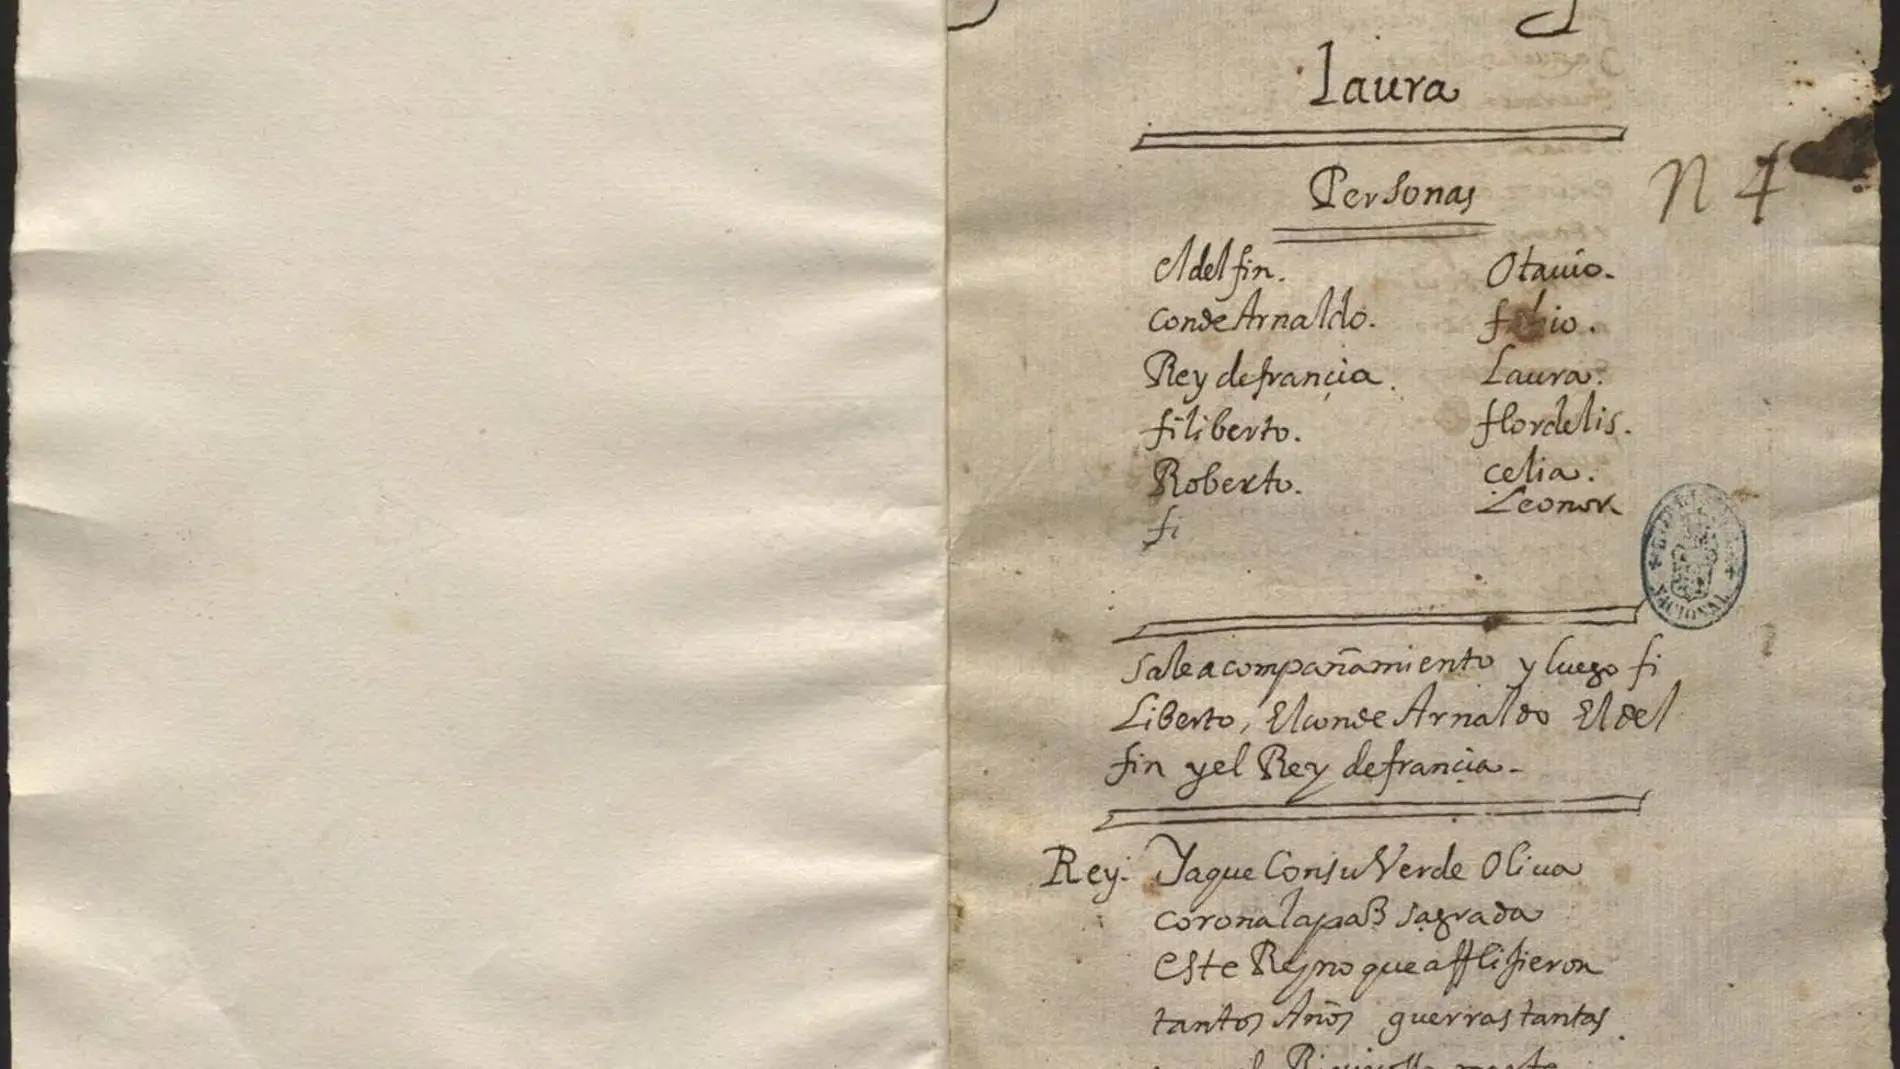 Laura
Personas
N 4
el delfin.
conde Arnaldo.
Rey de francia.
filiberto.
Roberto.
fi
Otauio.
fabio.
Laura.
flordelis.
celia.
Leonor
sale acompañamiento y luego fi
Liberto, El conde Arnaldo El del
fin y el Rey de francia.
Rey. Ya que Con su Verde Oliua
corona la paß sagrada
este Reyno que afflijieron
tantos Años guerras tantas
NACIONAL